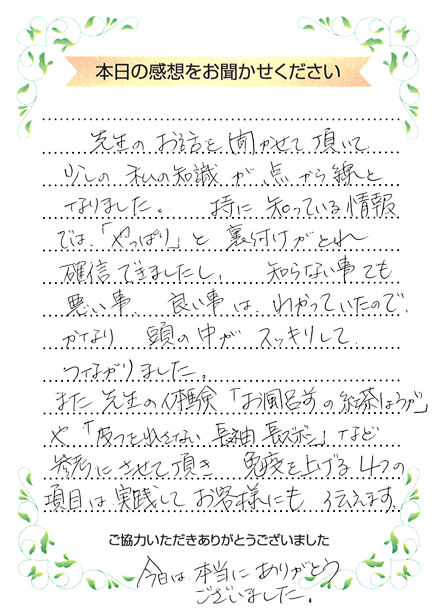 本日の感想をお聞かせください
先生のお話を聞かせて頂いて
少しの私の知識が、点から線と
なりました。 特に知っている情報
では、「やっぱり」と裏付けがとれ
確信できましたし、 知らない事でも
悪い事、良い事は、わかっていたので、
かなり 頭の中が スッキリして
つながりました。
また先生の体験「お風呂前の紅茶しょうが」
や「皮フを出さない 長袖長ズボン」など
参考にさせて頂き 免疫を上げる4つの
項目は実践してお客様にも 伝えます。
ご協力いただきありがとうございました
今日は本当にありがとう
ございました。